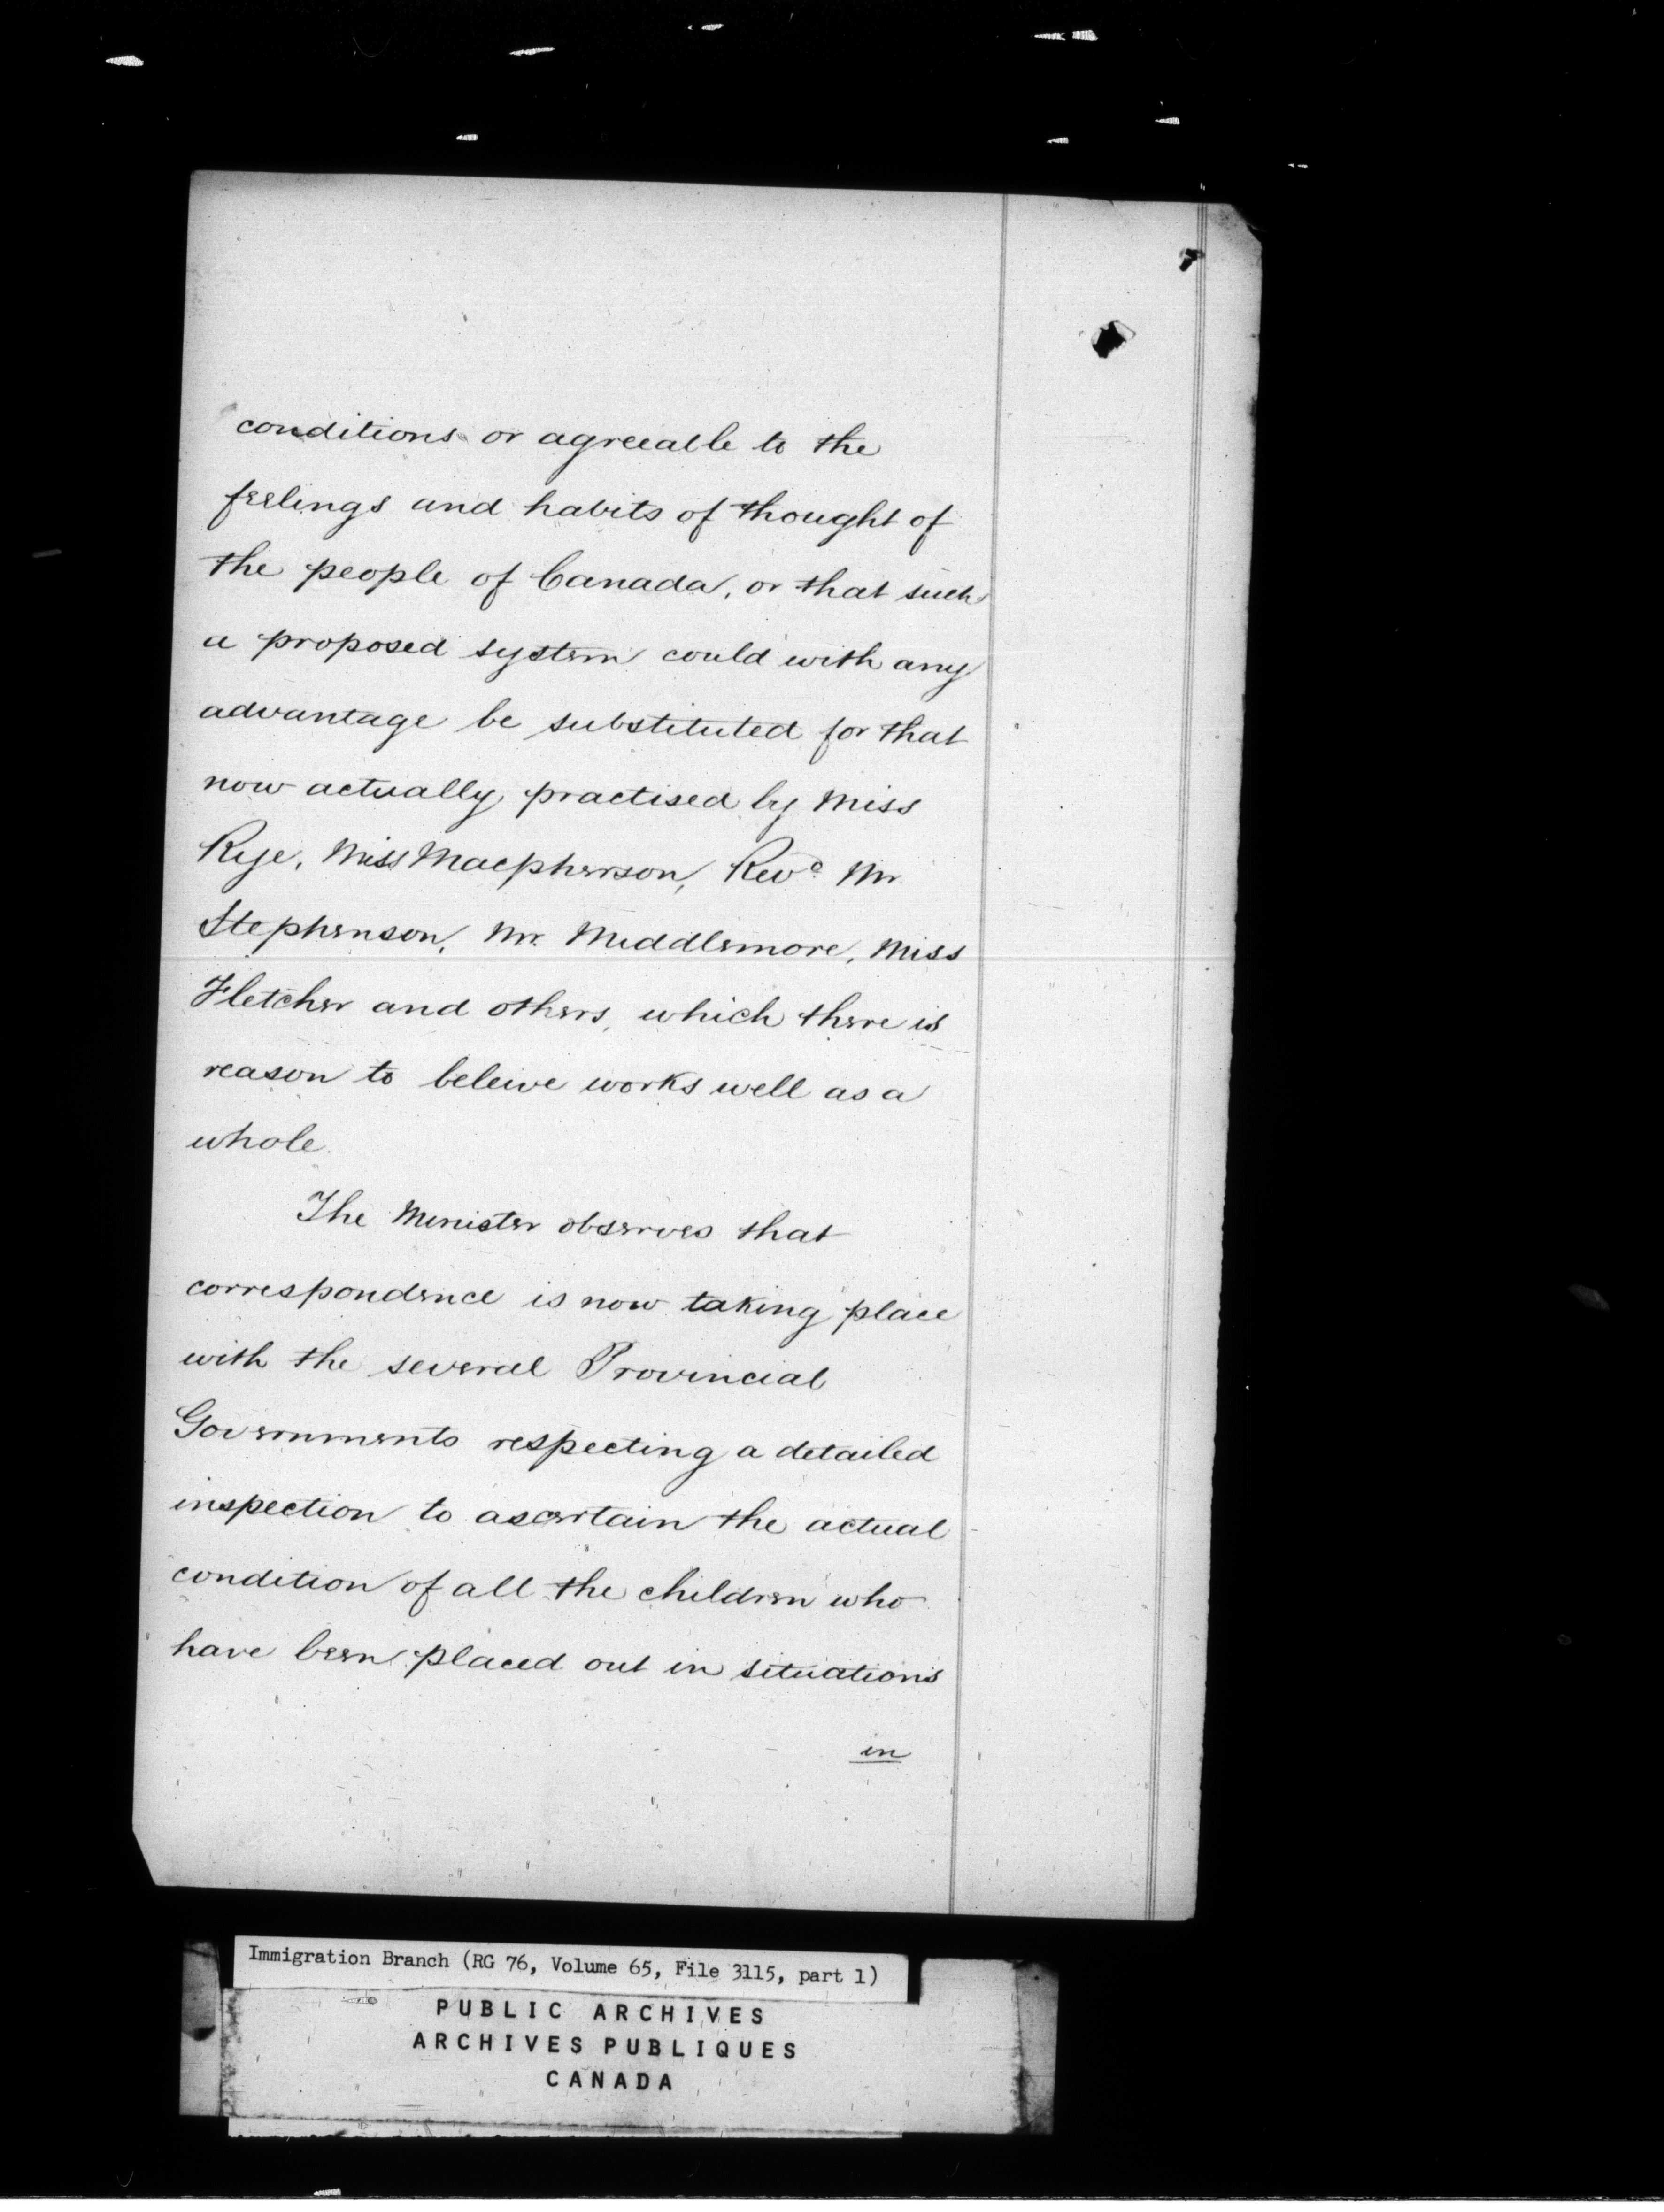 conditions or agreeable to the
feelings and habits of thought of
the people of Canada, or that such
a proposed system could with any
advantage be substituted for that
now actually practised by Miss
Rye, Miss Macpherson, Revd. Mr
Stephenson, Mr. Middlemore, Miss
Fletcher and others, which there is
reason to beleive works well as a
whole.
The Minister observes that
correspondence is now taking place
with the several Provincial
Governments respecting a detailed
inspection to ascertain the actual
condition of all the children who
have been placed out in situations
in
Immigration Branch (RG 76, Volume 65, File 3115, part 1)
PUBLIC ARCHIVES
ARCHIVES PUBLIQUES
CANADA